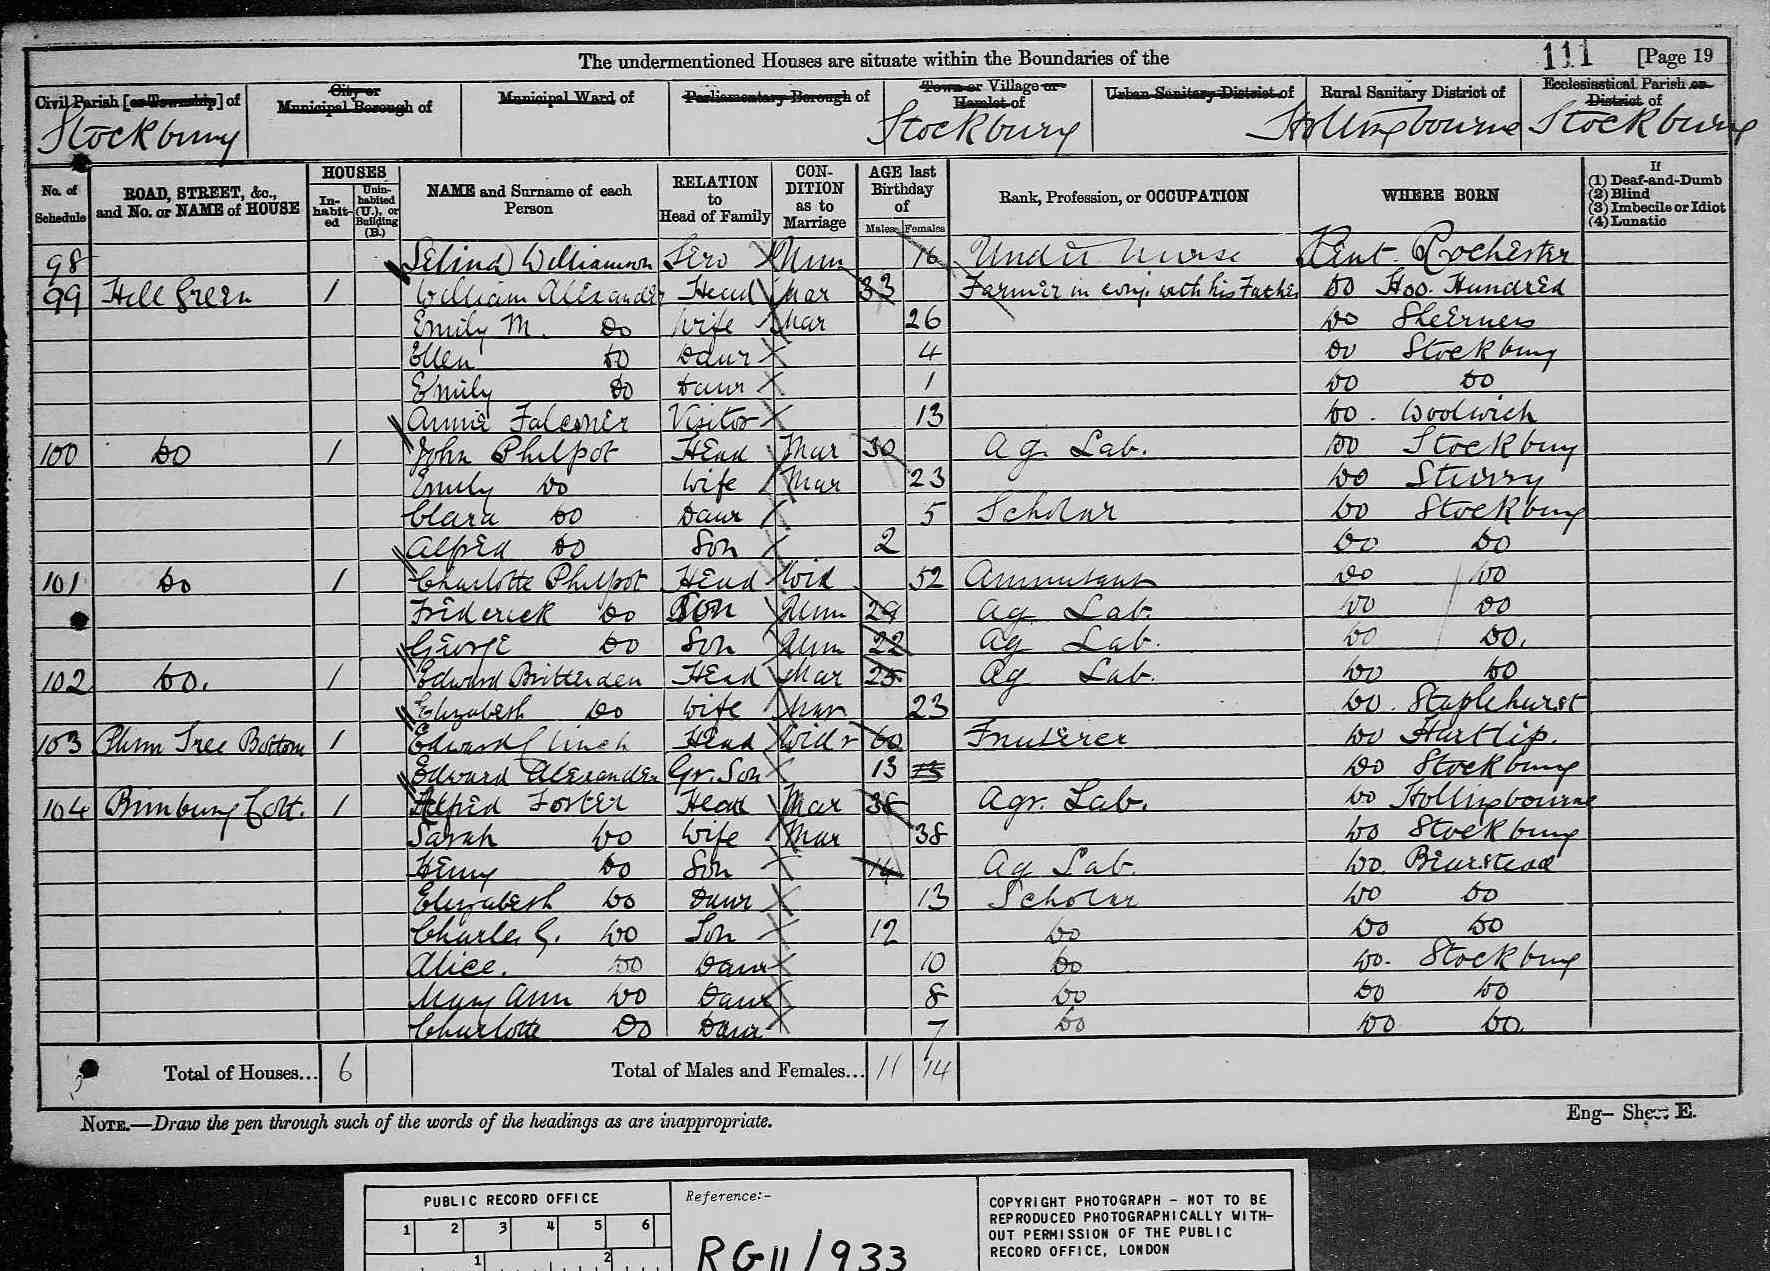 The undermentioned Houses are situate within the Boundaries of the 111 [Page 19
Civil Parish [or Township] of City or Municipal Borough of Municipal Ward of Parliamentary Borough of Town or Village or Hamlet of Urban Sanitary District of Rural Sanitary District of Ecclesiastical Parish or District of
Stockbury Stockbury Hollingbourne Stockbury
No. of Schedule ROAD, STREET, &c., and No. or NAME of HOUSE HOUSES In-habit-ed Unin-habited (U.), or Building (B.) NAME and Surname of each Person RELATION to Head of Family CON-DITION as to Marriage AGE last Birthday of Males Females Rank, Profession, or OCCUPATION WHERE BORN If (1) Deaf-and-Dumb (2) Blind (3) Imbecile or Idiot (4) Lunatic
98 Selina Williamson Serv Unm 16 Under Nurse Kent Rochester
99 Hill Green 1 William Alexander Head Mar 33 Farmer in conj. with his Father Do Hoo. Hundred
Emily M. Do Wife Mar 26 Do Sheerness
Ellen Do Daur 4 Do Stockbury
Emily Do Daur 1 Do Do
Annie Falconer Visitor 13 Do. Woolwich
100 Do 1 John Philpot Head Mar 30 Ag. Lab. Do Stockbury
Emily Do Wife Mar 23 Do Sturry
Clara Do Daur 5 Scholar Do Stockbury
Alfred Do Son 2 Do Do
101 Do 1 Charlotte Philpot Head Wid 52 Annuitant Do Do
Frederick Do Son Unm 24 Ag. Lab. Do Do
George Do Son Unm 22 Ag Lab. Do Do.
102 Do. 1 Edward Brittenden Head Mar 25 Ag Lab. Do Do
Elizabeth Do Wife Mar 23 Do. Staplehurst
103 Plum Tree Bottom 1 Edward Clinch Head Widr 60 Fruiterer Do Hartlip.
Edward Alexander Gr. Son 13 Do Stockbury
104 Binbury Cott. 1 Alfred Foster Head Mar 38 Agr. Lab. Do Hollingbourne
Sarah Do Wife Mar 38 Do Stockbury
Henry Do Son 14 Ag Lab. Do. Bearstead
Elizabeth Do Daur 13 Scholar Do Do
Charles G. Do Son 12 Do Do Do
Alice. Do Daur 10 Do Do. Stockbury
Mary Ann Do Daur 8 Do Do Do
Charlotte Do Daur 7 Do Do Do.
Total of Houses... 6 Total of Males and Females... 11 14
NOTE.—Draw the pen through such of the words of the headings as are inappropriate. Eng— Sheet E.
PUBLIC RECORD OFFICE
1 2 3 4 5 6
1 2
Reference:-
RG11/933
COPYRIGHT PHOTOGRAPH - NOT TO BE
REPRODUCED PHOTOGRAPHICALLY WITH-
OUT PERMISSION OF THE PUBLIC
RECORD OFFICE, LONDON